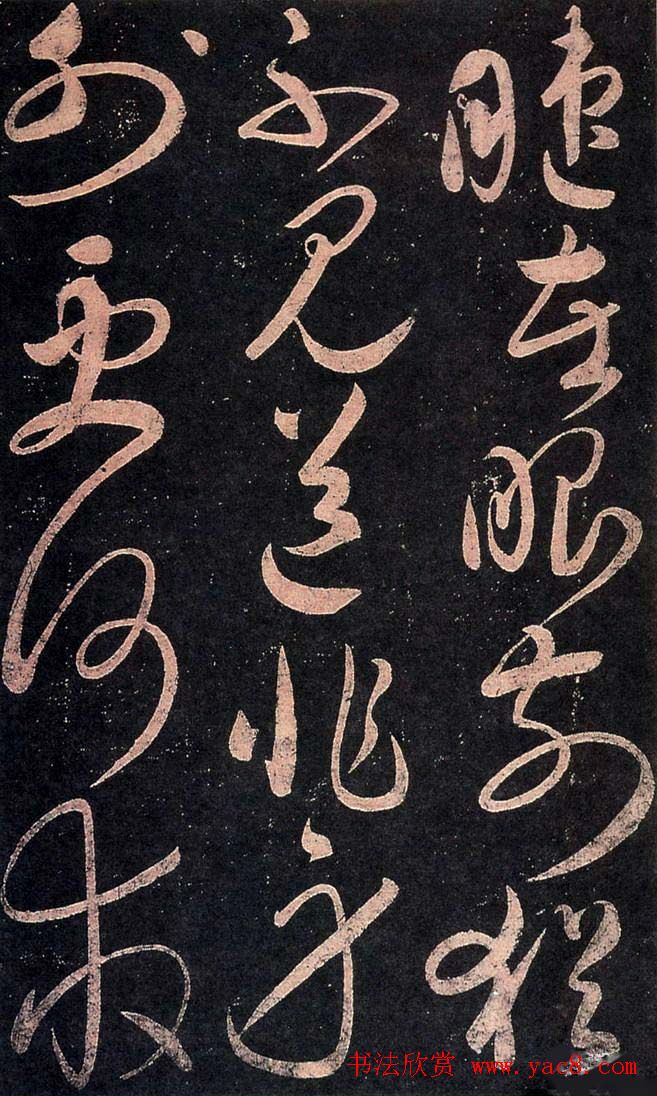 睫在眼前猶
不見道非身
外更何求
书法欣赏 www.yac8.com